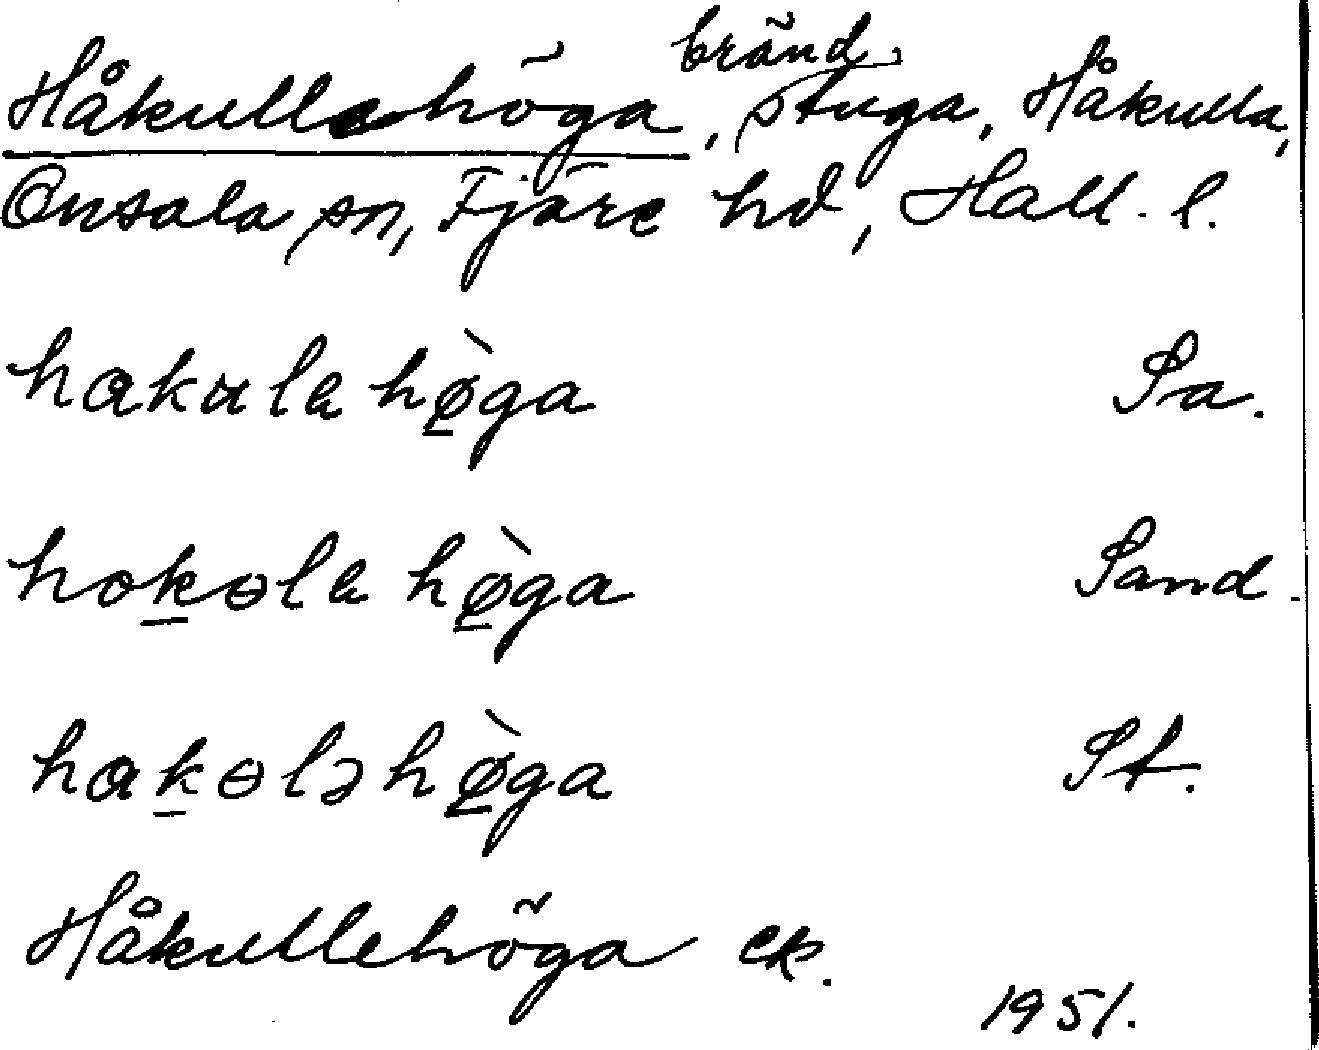 Håkullehöga, bränd stuga, Håkulla,
Onsala sn, Fjäre hd, Hall. l.
hakula hø̀ga Sa.
hokɵla hø̀ga Sand.
hakɵlə hø̀ga St.
Håkullehöga ek.
1951.